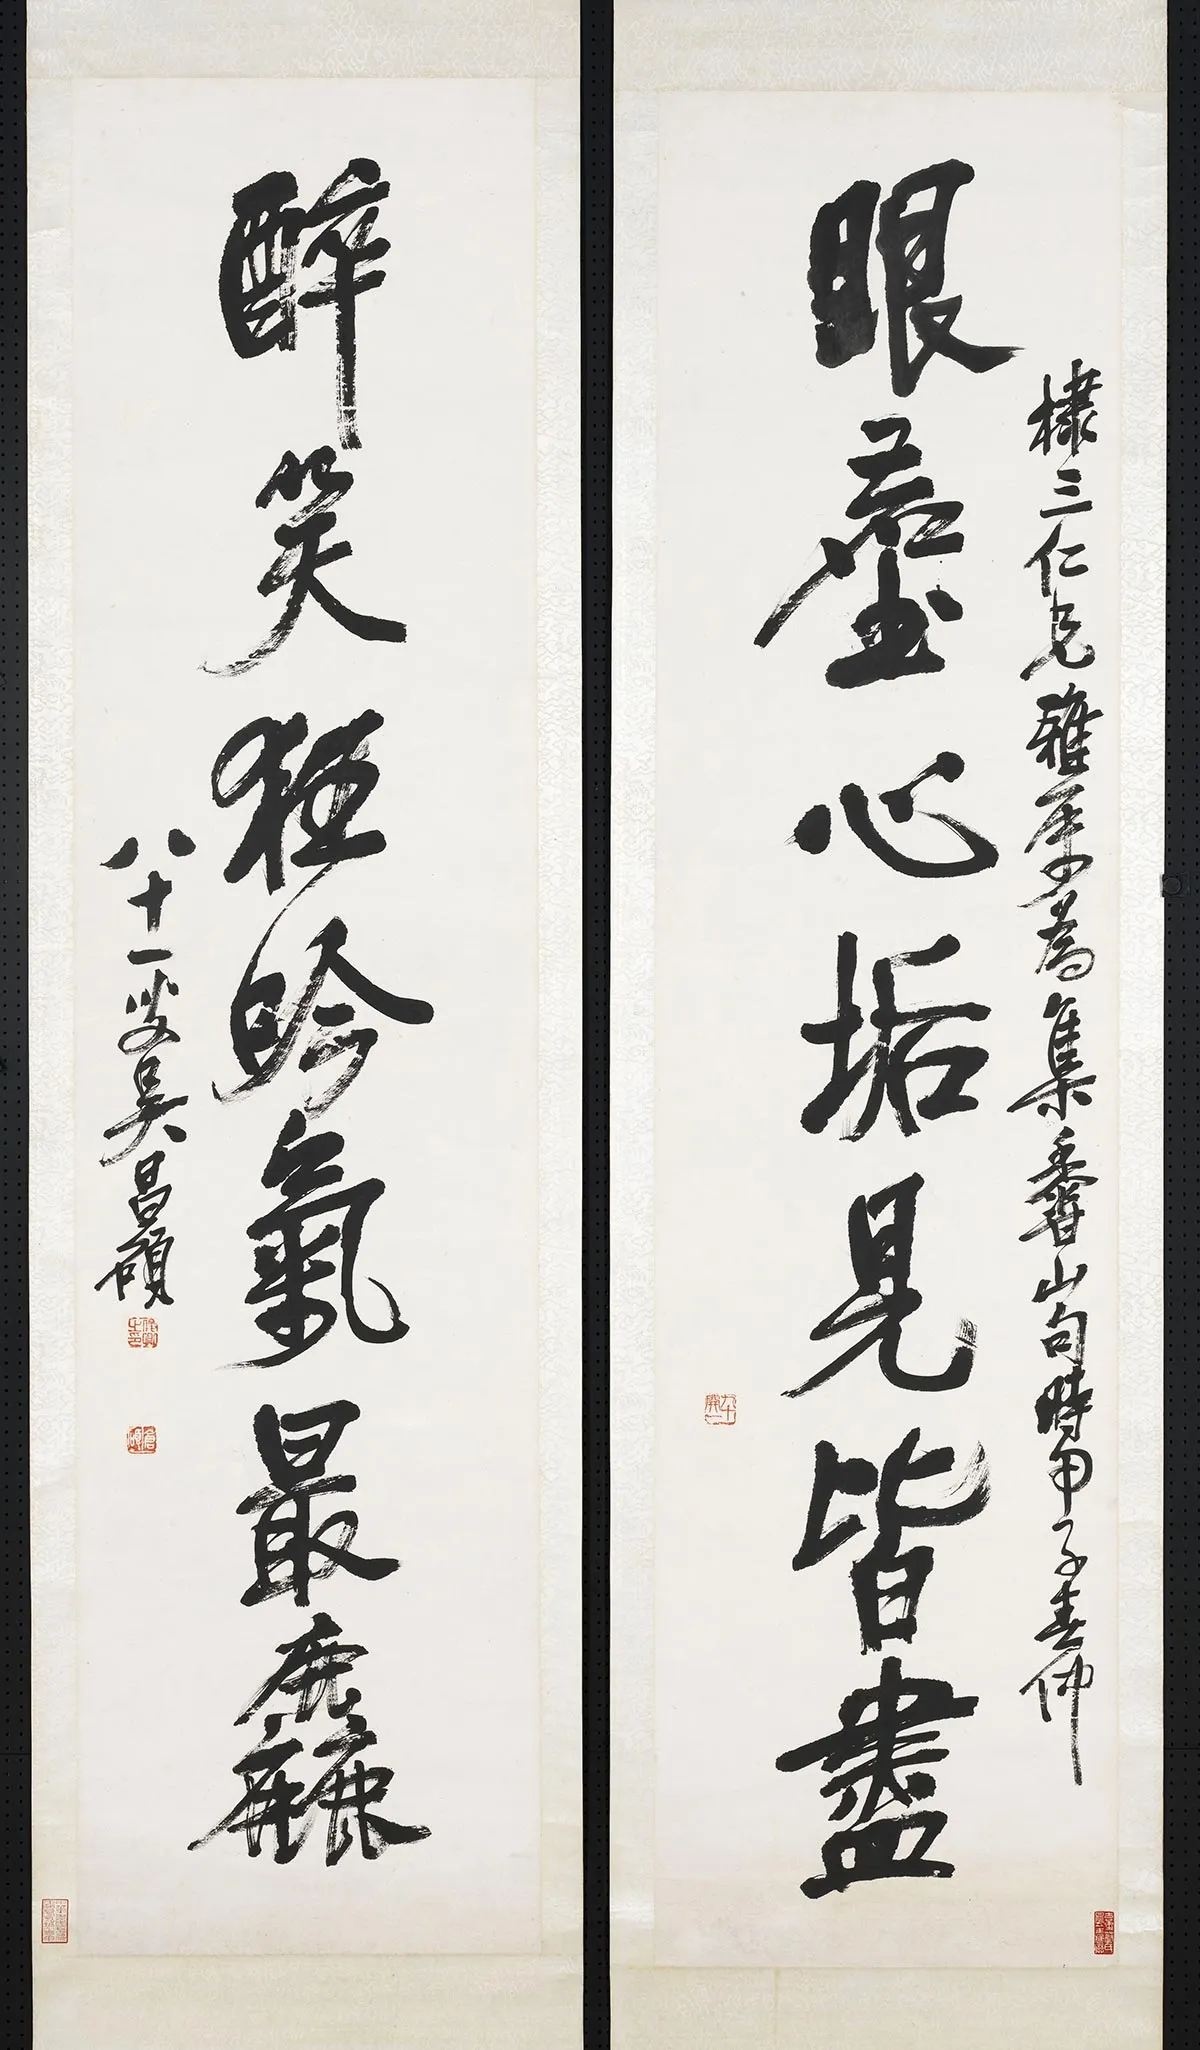 棣三仁兄雅屬為集香山句時甲子春仲
眼塵心垢見皆盡
醉笑狂吟氣最麤
八十一叟吳昌碩
俊卿之印
倉碩